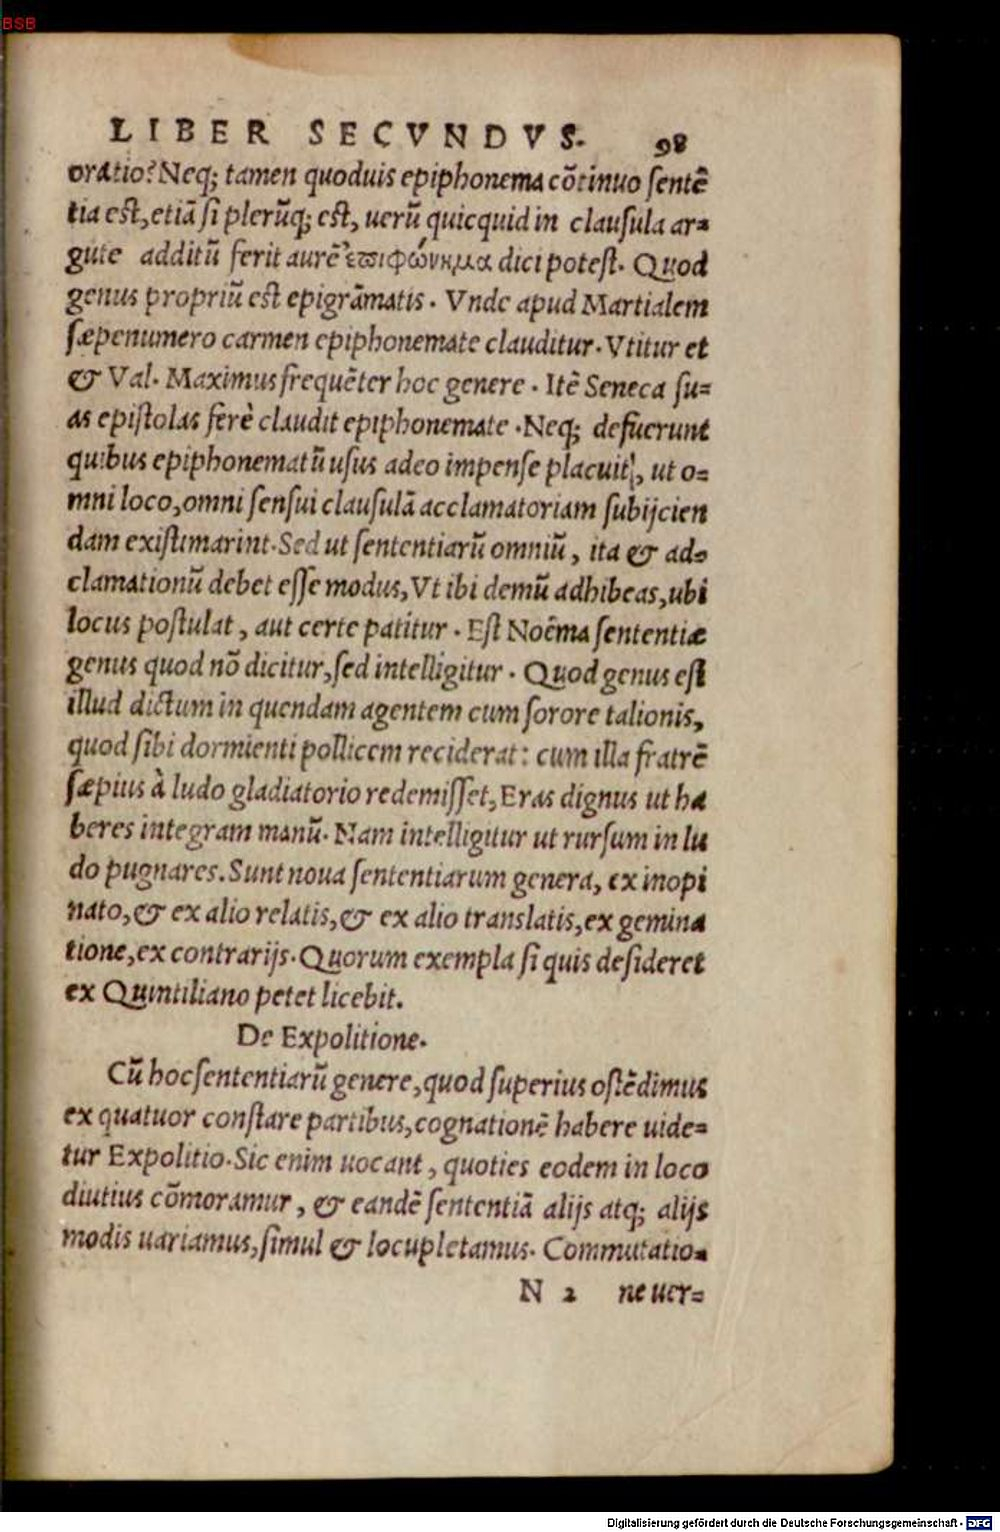 BSB
LIBER SECVNDVS. 98
oratio? Neq; tamen quoduis epiphonema cõtinuo sentẽ
tia est, etiã si plerũq; est, uerũ quicquid in clausula ar-
gute additũ ferit aurẽ ἐπιφώνημα dici potest. Quod
genus propriũ est epigrãmatis. Vnde apud Martialem
sæpenumero carmen epiphonemate clauditur. Vtitur et
& Val. Maximus frequẽter hoc genere. Itẽ Seneca su-
as epistolas ferè claudit epiphonemate. Neq; defuerunt
quibus epiphonematũ usus adeo impense placuit, ut o-
mni loco, omni sensui clausulã acclamatoriam subijcien
dam existimarint. Sed ut sententiarũ omniũ, ita & ad-
clamationũ debet esse modus, Vt ibi demũ adhibeas, ubi
locus postulat, aut certe patitur. Est Noêma sententiæ
genus quod nõ dicitur, sed intelligitur. Quod genus est
illud dictum in quendam agentem cum sorore talionis,
quod sibi dormienti pollicem reciderat: cum illa fratrẽ
sæpius à ludo gladiatorio redemisset, Eras dignus ut ha
beres integram manũ. Nam intelligitur ut rursum in lu
do pugnares. Sunt noua sententiarum genera, ex inopi
nato, & ex alio relatis, & ex alio translatis, ex gemina
tione, ex contrarijs. Quorum exempla si quis desideret
ex Quintiliano petet licebit.
De Expolitione.
Cũ hoc sententiarũ genere, quod superius ostẽdimus
ex quatuor constare partibus, cognationẽ habere uide-
tur Expolitio. Sic enim uocant, quoties eodem in loco
diutius cõmoramur, & eandẽ sententiã alijs atq; alijs
modis uariamus, simul & locupletamus. Commutatio-
N 2 ne uer-
Digitalisierung gefördert durch die Deutsche Forschungsgemeinschaft - DFG